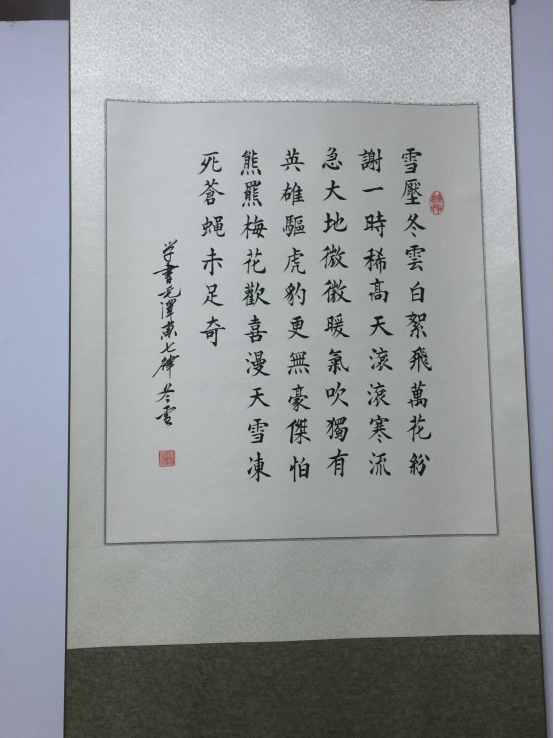 雪壓冬雲白絮飛萬花紛
謝一時稀高天滾滾寒流
急大地微微暖氣吹獨有
英雄驅虎豹更無豪傑怕
熊羆梅花歡喜漫天雪凍
死蒼蝇未足奇
学書毛澤東七律冬雲